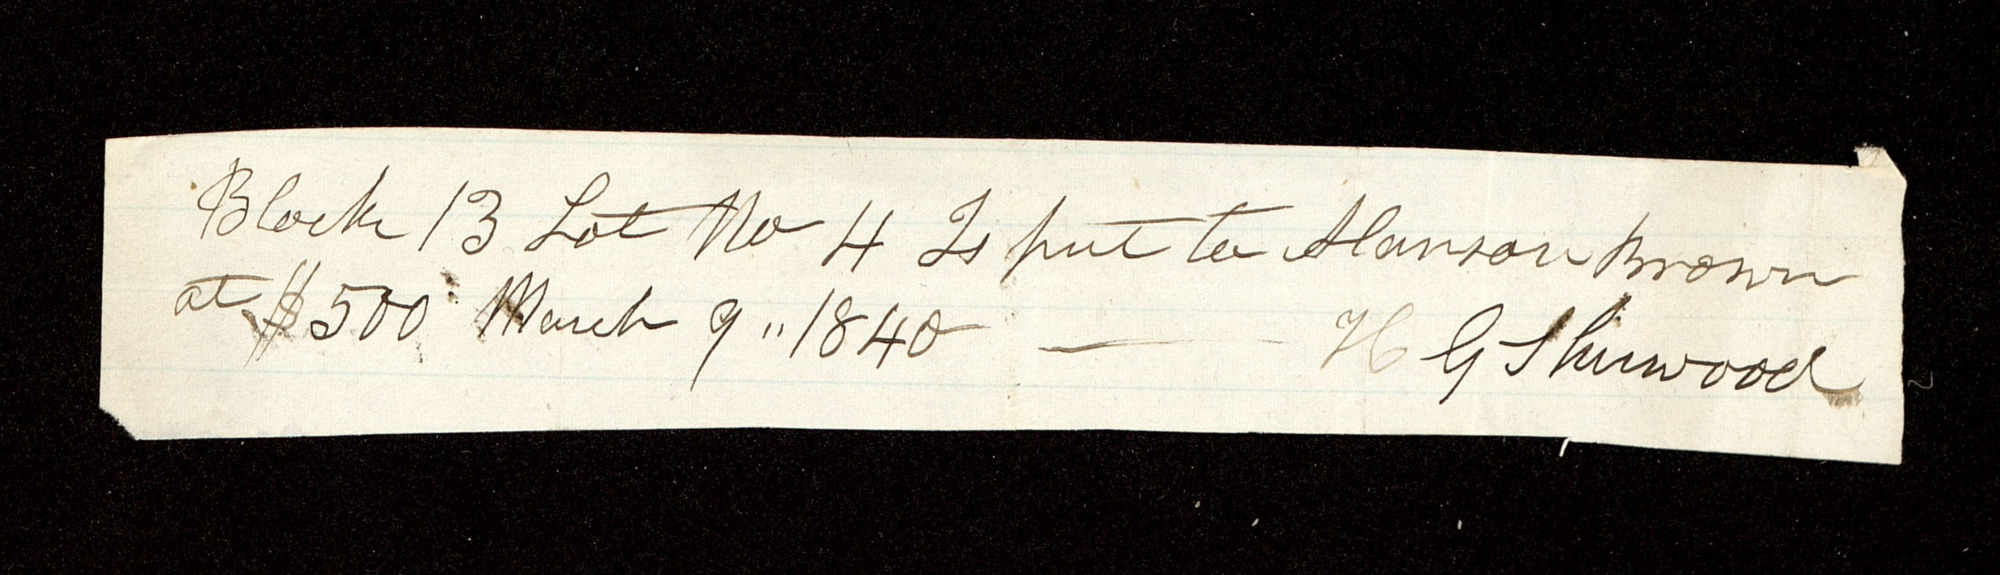 Block 13 Lot No 4 Is put to Alanson Brown
at $500 March 9" 1840 — H G Sherwood